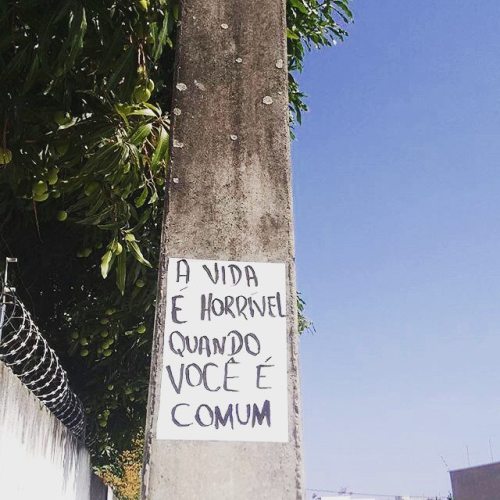 A VIDA
É HORRÍVEL
QUANDO
VOCÊ É
COMUM